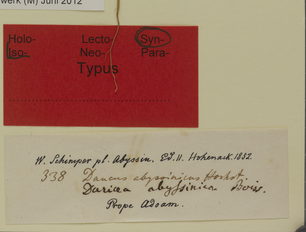 werk (M) Juni 2012
Holo- Lecto- Syn-
Iso- Neo- Para-
Typus
W. Schimper pl. Abyssin. Ed. II. Hohenack. 1852.
338 Daucus abyssinicus Hochst.
abyssinica Boiss.
Prope Adoam.